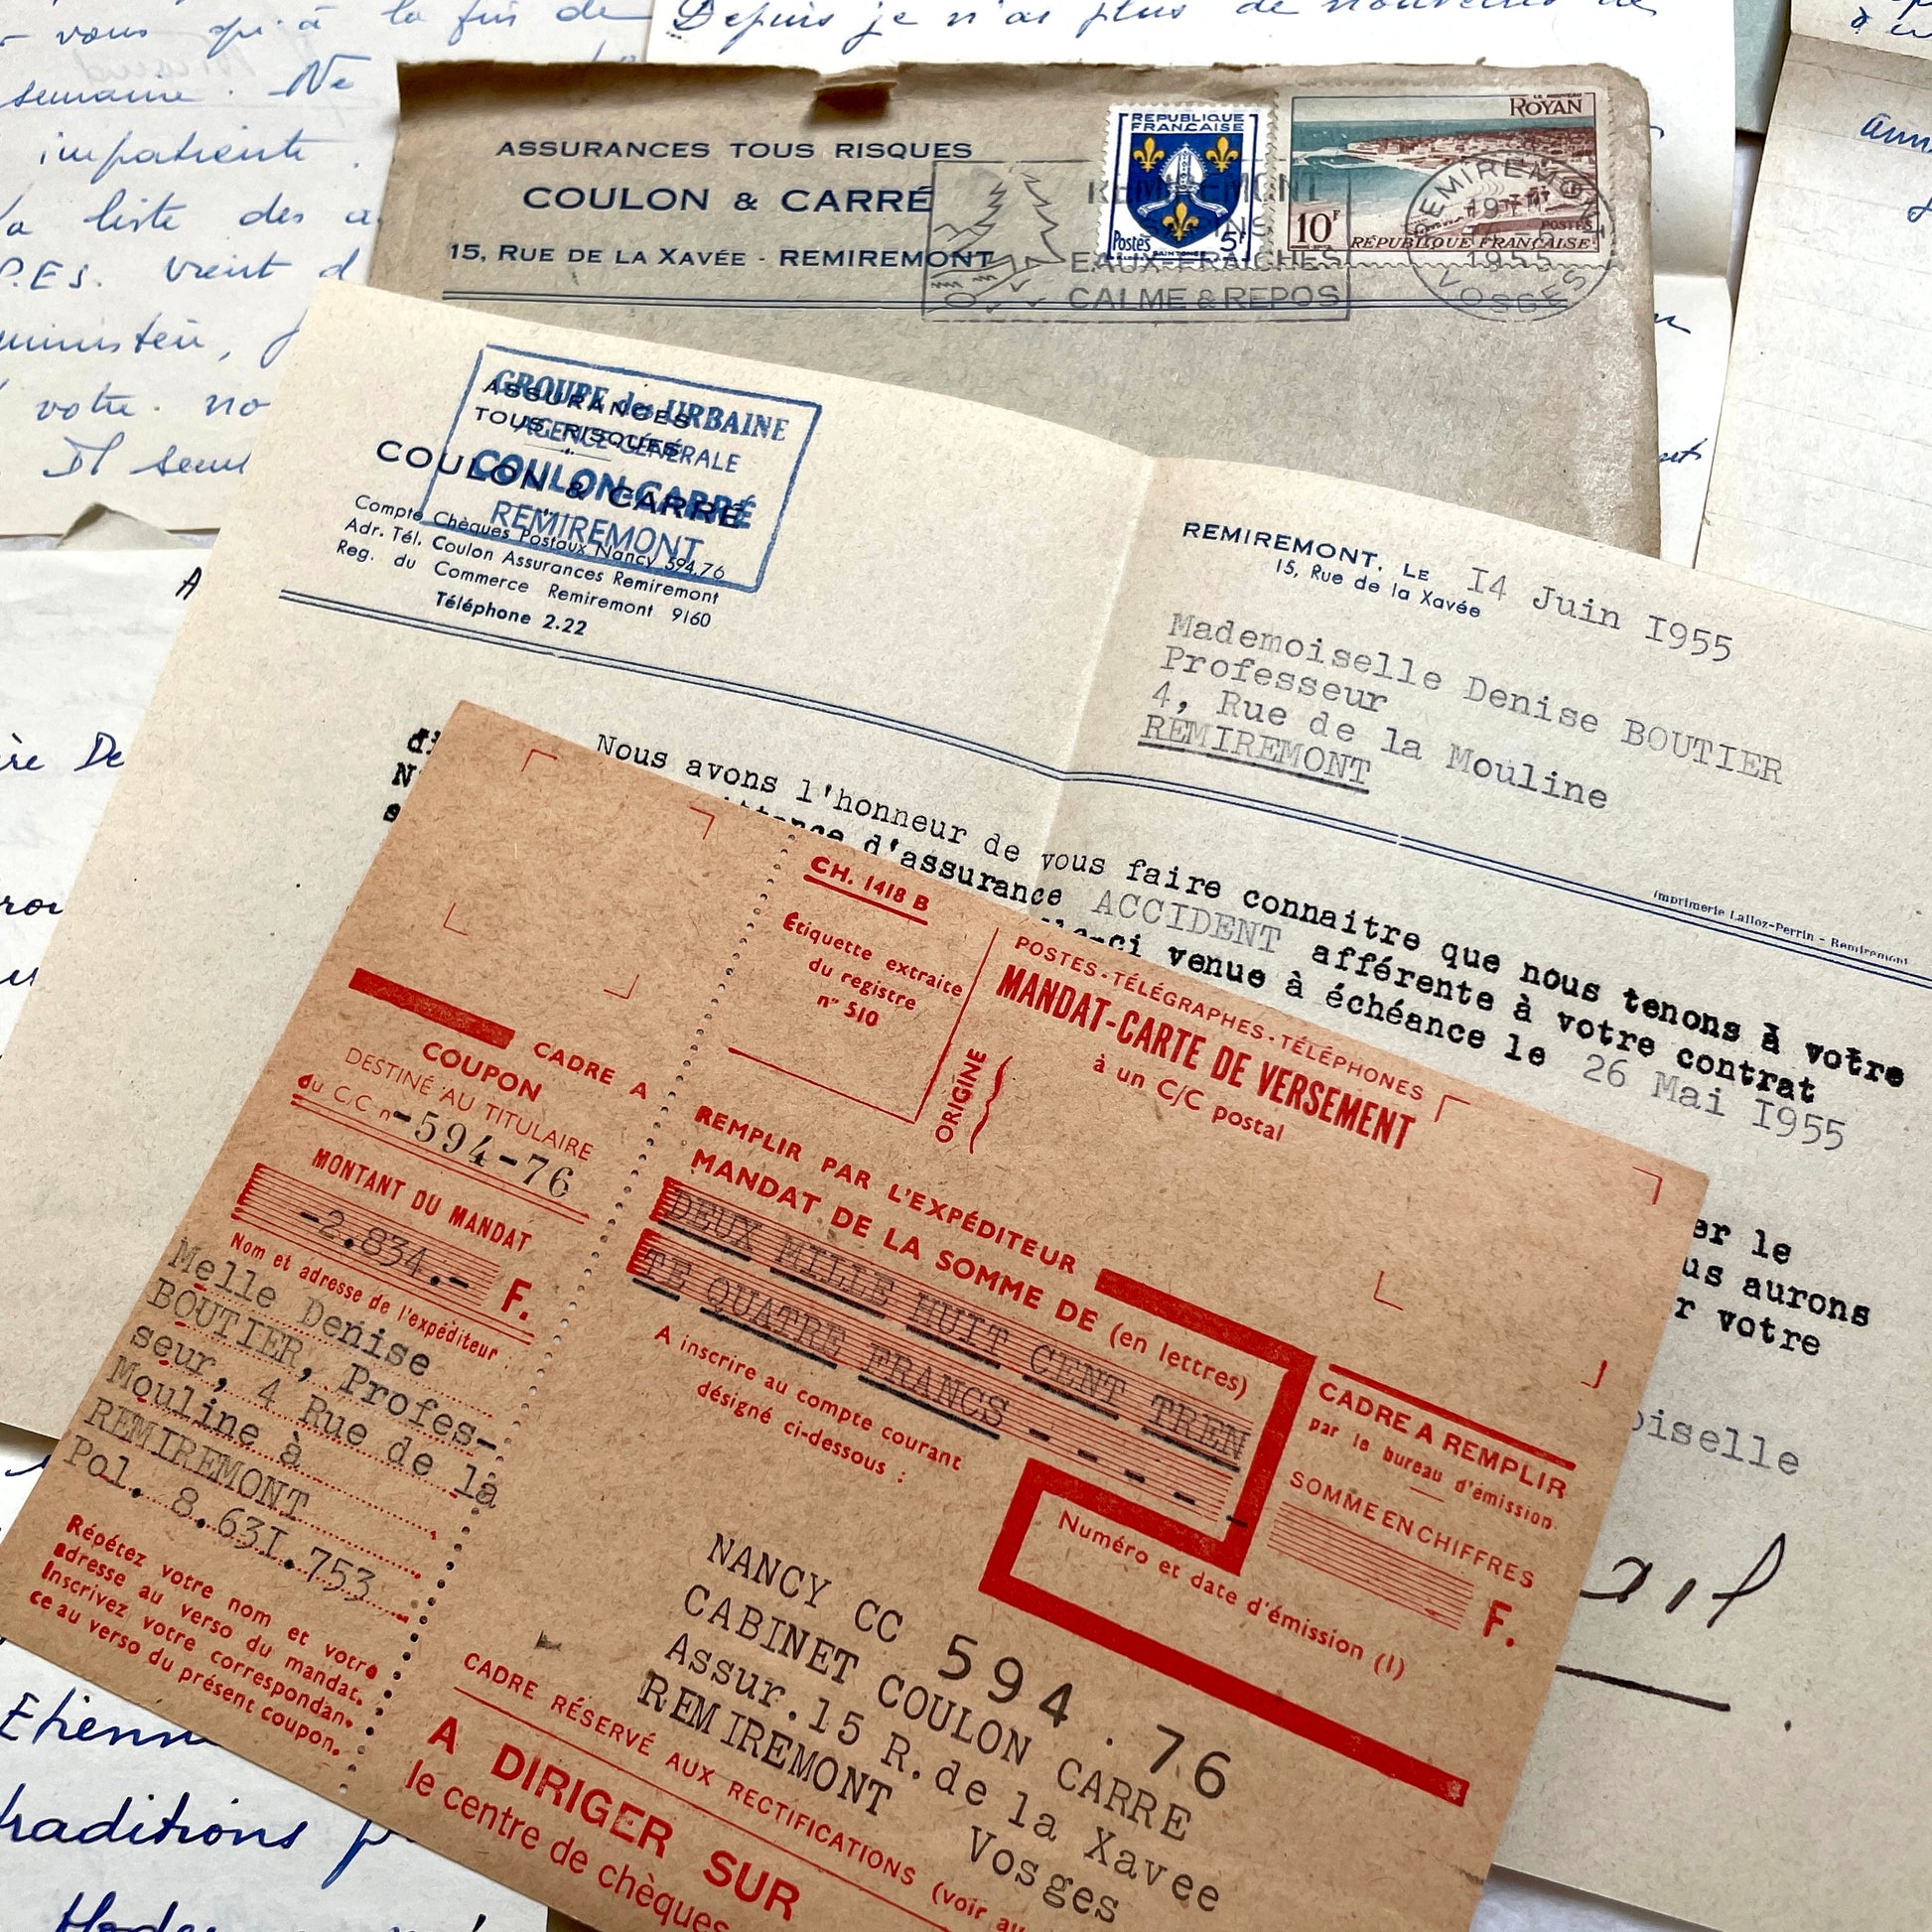 vous qui à la fin de
semaine. Ne
impatiente.
la liste des a
P.ES. vient d
votre no
Il sem
Depuis je n'ai plus de nouvelles de
ASSURANCES TOUS RISQUES
COULON & CARRÉ
15, RUE DE LA XAVÉE - REMIREMONT
REMIREMONT
EAUX-FRAICHES
CALME & REPOS
REPUBLIQUE
FRANÇAISE
Postes 5F
LE NOUVEAU
ROYAN
10F
POSTES
RÉPUBLIQUE FRANÇAISE
REMIREMONT
1955
VOSGES
GROUPE des URBAINE
AGENCE GÉNÉRALE
COULON-CARRÉ
REMIREMONT
ASSURANCES
TOUS RISQUES
COULON & CARRÉ
Compte Chèques Postaux Nancy 594.76
Adr. Tél. Coulon Assurances Remiremont
Reg. du Commerce Remiremont 9160
Téléphone 2.22
REMIREMONT. LE I4 Juin I955
15, Rue de la Xavée
Mademoiselle Denise BOUTIER
Professeur
4, Rue de la Mouline
REMIREMONT
Imprimerie Lalloz-Perrin - Remiremont
Nous avons l'honneur de vous faire connaitre que nous tenons à votre
di
ittance d'assurance ACCIDENT afférente à votre contrat
N
lle-ci venue à échéance le 26 Mai I955
s
er le
us aurons
r votre
oiselle
CADRE A
COUPON
DESTINÉ AU TITULAIRE
du C/C n° -594-76
MONTANT DU MANDAT
-2.834.- F.
Nom et adresse de l'expéditeur :
Melle Denise
BOUTIER, Profes-
seur, 4 Rue de la
Mouline à
REMIREMONT
Pol. 8.63I.753
Répétez votre nom et votre
adresse au verso du mandat.
Inscrivez votre correspondan-
ce au verso du présent coupon.
CH. 1418 B
Étiquette extraite
du registre
n° 510
ORIGINE
POSTES-TÉLÉGRAPHES-TÉLÉPHONES
MANDAT-CARTE DE VERSEMENT
à un C/C postal
REMPLIR PAR L'EXPÉDITEUR
MANDAT DE LA SOMME DE (en lettres)
DEUX MILLE HUIT CENT TREN
TE QUATRE FRANCS - - - - -
A inscrire au compte courant
désigné ci-dessous :
CADRE A REMPLIR
par le bureau d'émission.
SOMME EN CHIFFRES
F.
Numéro et date d'émission (1)
NANCY CC 594.76
CABINET COULON CARRE
Assur.15 R.de la Xavee
REMIREMONT
Vosges
CADRE RÉSERVÉ AUX RECTIFICATIONS (voir au
A DIRIGER SUR
le centre de chèques
Etienn
traditions p